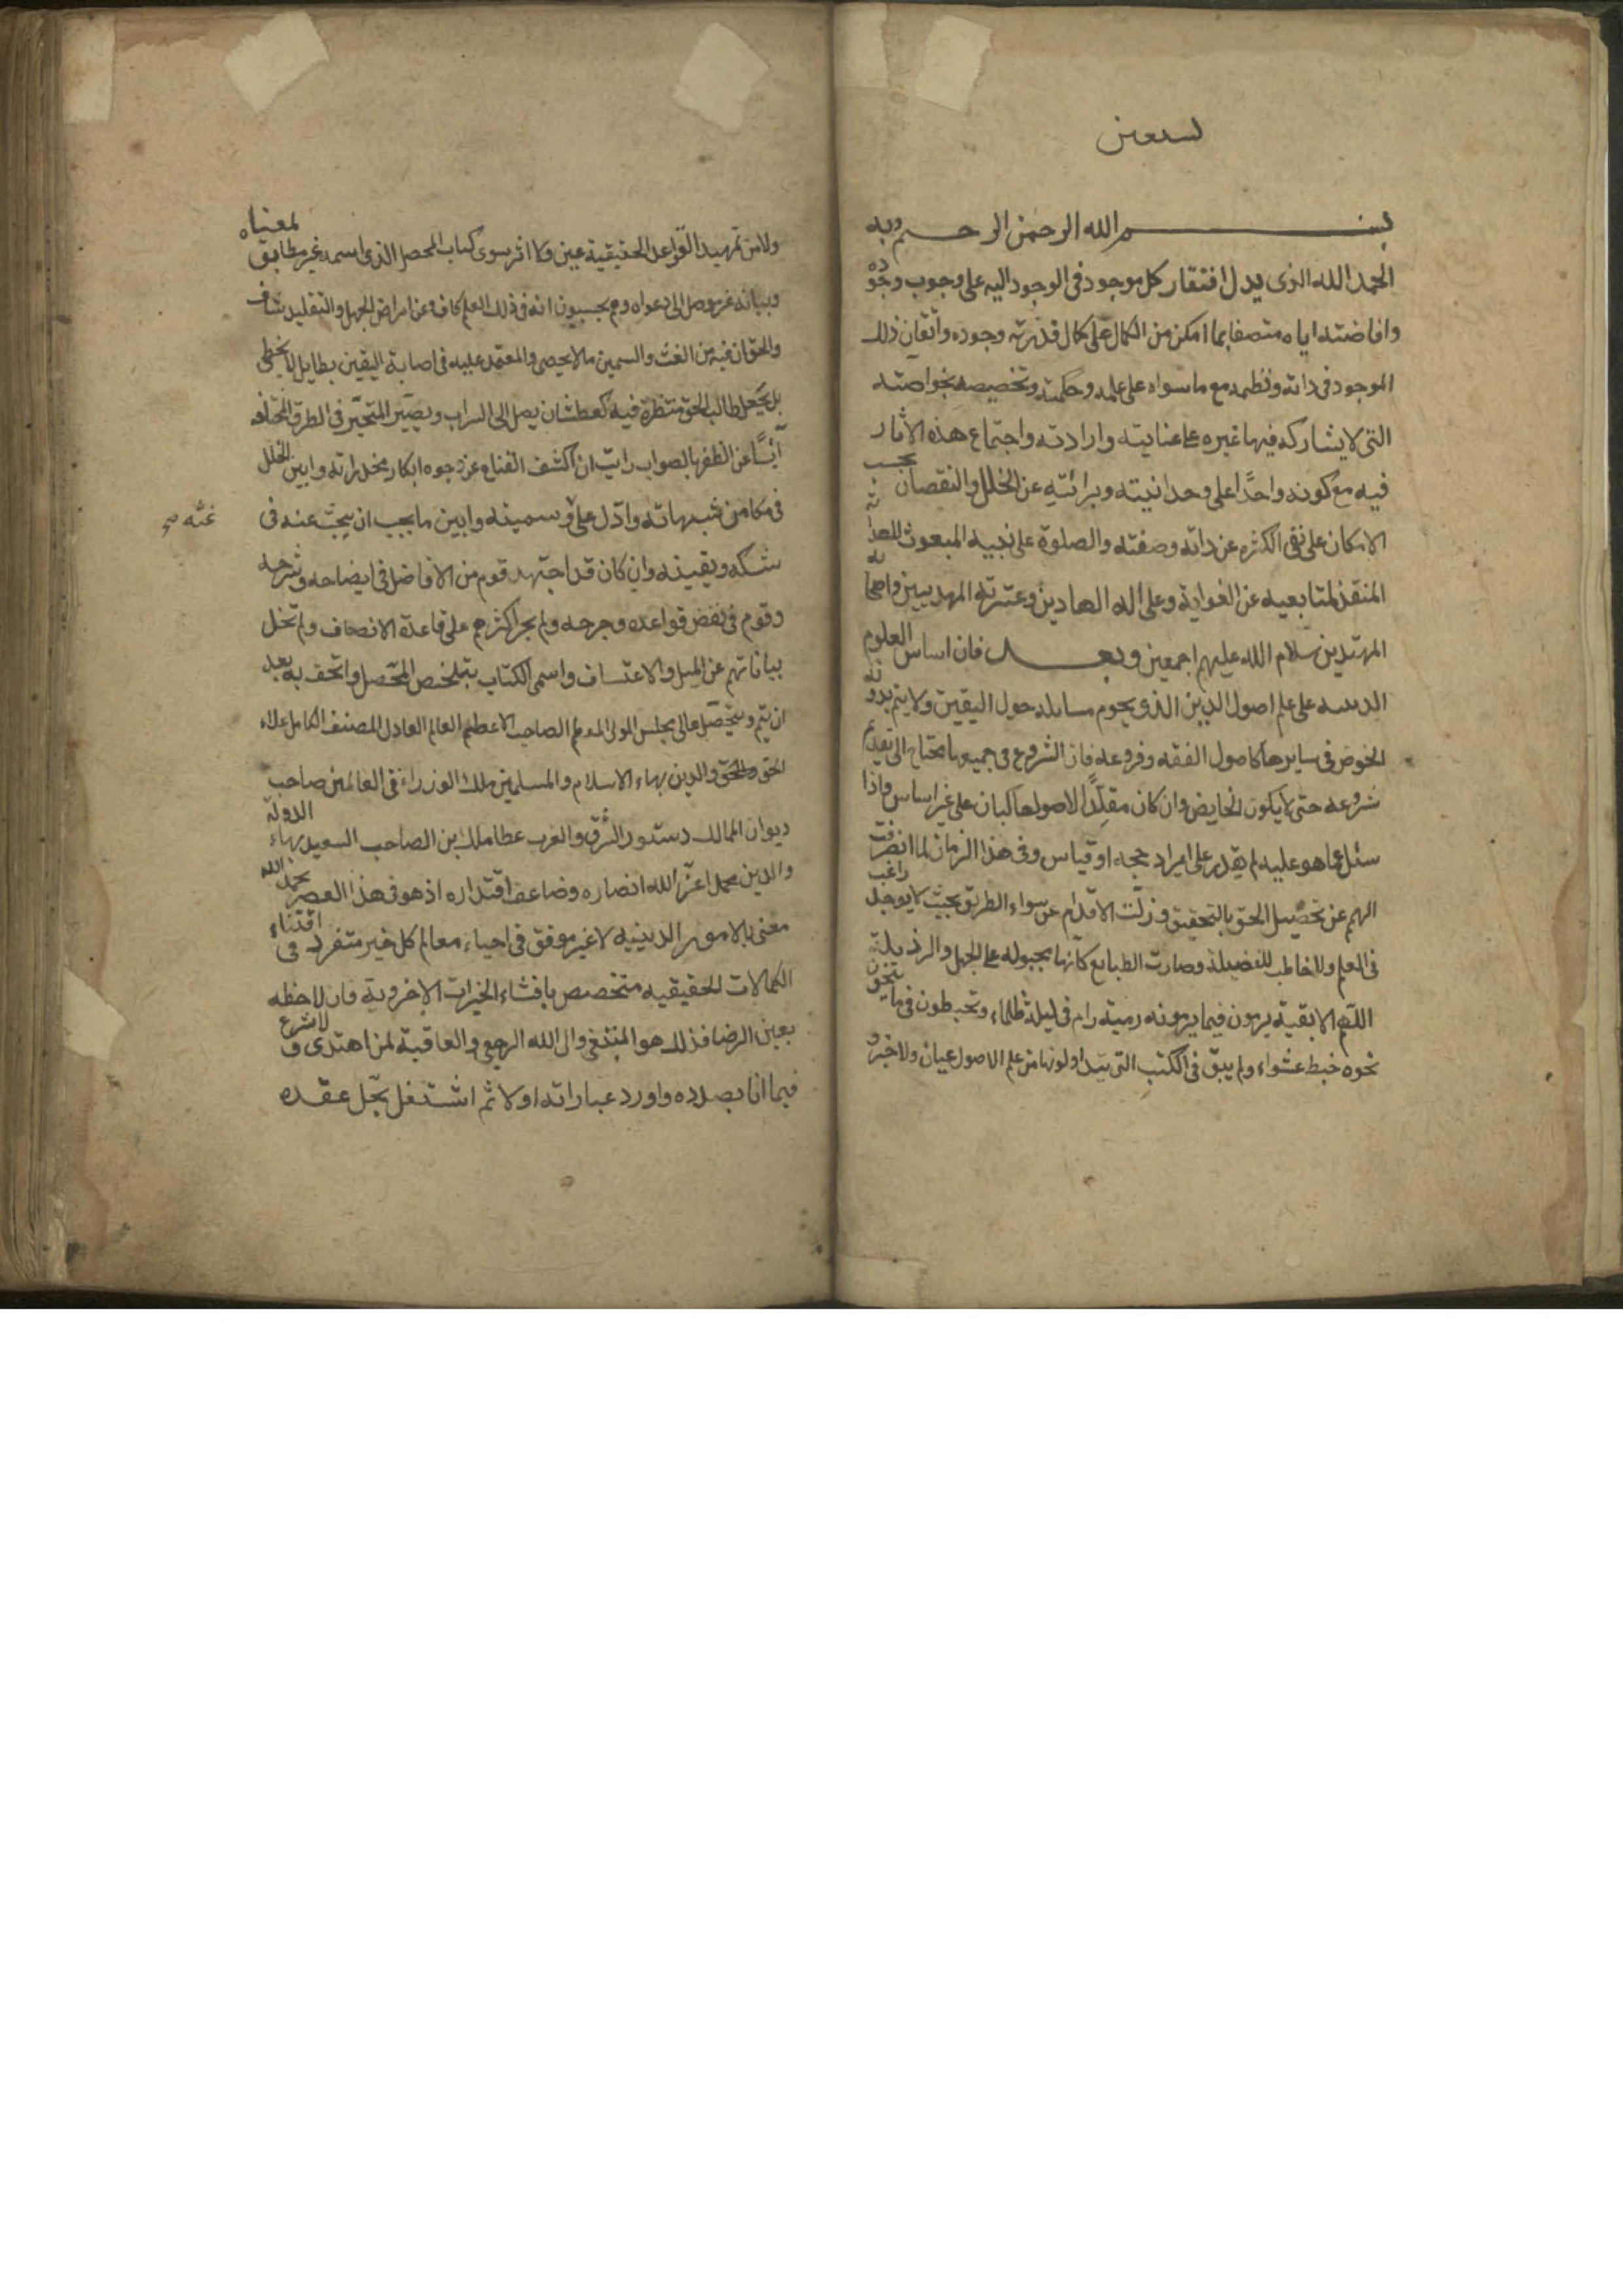 نستعين
بسم الله الرحمن الرحيم وبه
الحمد لله الذى يدل افتقار كل موجود فى الوجود اليه على وجوب وجوده
وافاضته اياه متصفا بما امكن من الكمال على كمال قدرته وجوده واتقان ذلك
الموجود فى ذاته ونظمه مع ما سواه على علمه وحكمته وتخصيصه بخواصته
التى لا يشاركه فيها غيره على عنايته وارادته واجتماع هذه الاثار
فيه مع كونه واحدًا على وحدانيته وبرائته عن الخلل والنقصان بحسب
الامكان على نفى الكثره عن ذاته وصفته والصلوة على نبيه المبعوث للهداية
المنقذ لمتابعيه عن الغواية وعلى اله الهادين وعترته المهديين واصحابه
المهتدين سلام الله عليهم اجمعين وبعد فان اساس العلوم
الدينيه على علم اصول الدين الذى يحوم مسايله حول اليقين ولا يتم بدونه
الخوض فى سايرها كاصول الفقه وفروعه فان الشروع فى جميعها يحتاج الى تقديم
شروعه حتى لا يكون الخايض وان كان مقلدًا لاصولها كبان على غير اساس واذا
سئل عما هو عليه لم يقدر على ايراد حجه او قياس وفى هذا الزمان لما انصرفت
الهمم عن تحصيل الحق بالتحقيق وزلت الاقدام عن سواء الطريق بحيث لا يوجد راغب
فى العلم ولا خاطب للفضيلة وصارت الطبايع كانها مجبوله على الجهل والرذيلة
اللهم الا بقية يرمون فيما يرمونه رمية رام فى ليلة ظلماء ويخبطون فيما ينحون
نحوه خبط عشواء ولم يبق فى الكتب التى يتداولونها من علم الاصول عيان ولا خبر و
ولا من تمهيد القواعد الحقيقية عين ولا اثر سوى كتاب المحصل الذى اسمه غير مطابق لمعناه
وبيانه غير موصل الى دعواه وهم يحسبون انه فى ذلك العلم كاف وعن امراض الجهل والتقليد شاف
والحق ان فيه من الغث والسمين ما لا يحصى والمعتمد عليه فى اصابة اليقين بطايل لا يحظى
بل يجعل طالب الحق بنظره فيه كعطشان يصل الى السراب ويصير المتحير فى الطرق المختلفه
آيسًا عن الظفر بالصواب رايت ان اكشف القناع عن وجوه ابكار مخدراته وابين الخلل
فى مكامن شبهاته وادل على وسمينه وابين ما يجب ان يبحث عنه فى
غثه صح
شكه ويقينه وان كان قد اجتهد قوم من الافاضل فى ايضاحه وشرحه
وقوم فى نقض قواعده وجرحه ولم يجر اكثرهم على قاعدة الانصاف ولم تخل
بياناتهم عن الميل والاعتساف واسمى الكتاب بتلخيص المحصل واتحف به بعد
ان يتم ويتحصل عالى مجلس المولى المعظم الصاحب الاعظم العالم العادل المنصف الكامل علاء
الحق والدين بهاء الاسلام والمسلمين ملك الوزراء فى العالمين صاحب
ديوان الممالك دستور الشرق والغرب عطا ملك بن الصاحب السعيد بهاء الدولة
والدين محمد اعز الله انصاره وضاعف اقتداره اذ هو فى هذا العصر بحمد الله
معنى بالامور الدينيه لا غير موفق فى احياء معالم كل خير متفرد فى اقتناء
الكمالات الحقيقيه متخصص بافشاء الخيرات الاخروية فان لاحظه
بعين الرضا فذلك هو المبتغى والى الله الرجعى والعاقبة لمن اهتدى ولاشرع
فيما انا بصدده واورد عباراته اولا ثم اشتغل بحل عقده